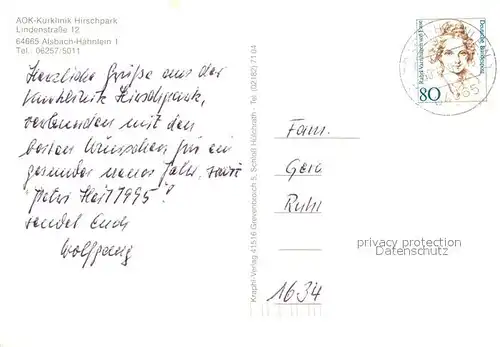 AOK-Kurklinik Hirschpark
Lindenstraße 12
64665 Alsbach-Hähnlein 1
Tel.: 06257/5011
Herzliche Grüße aus der
Kurklinik Hirschpark,
verbunden mit den
besten Wünschen für ein
gesundes neues Jahr,
1995!
sendet Euch
Wolfgang
Kraphl-Verlag 41516 Grevenbroich 5, Schloß Hülchrath - Tel. (02182) 71 04
Deutsche Bundespost
80
Fam.
Gerd
Ruhl
1634
privacy protection
Datenschutz